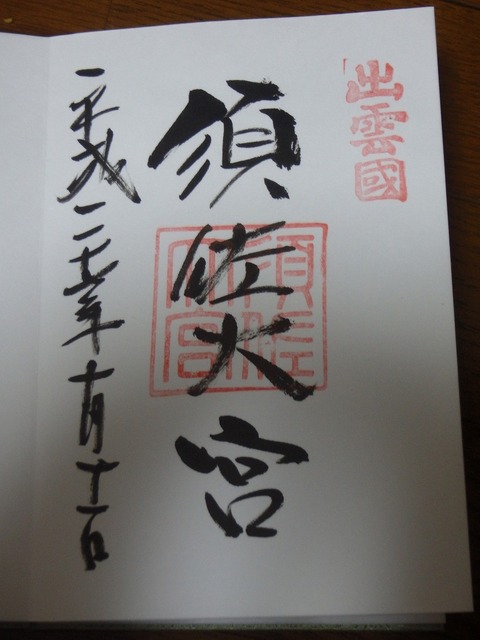 出雲國
須佐大宮
須佐大宮
平成二十七年十月十一日